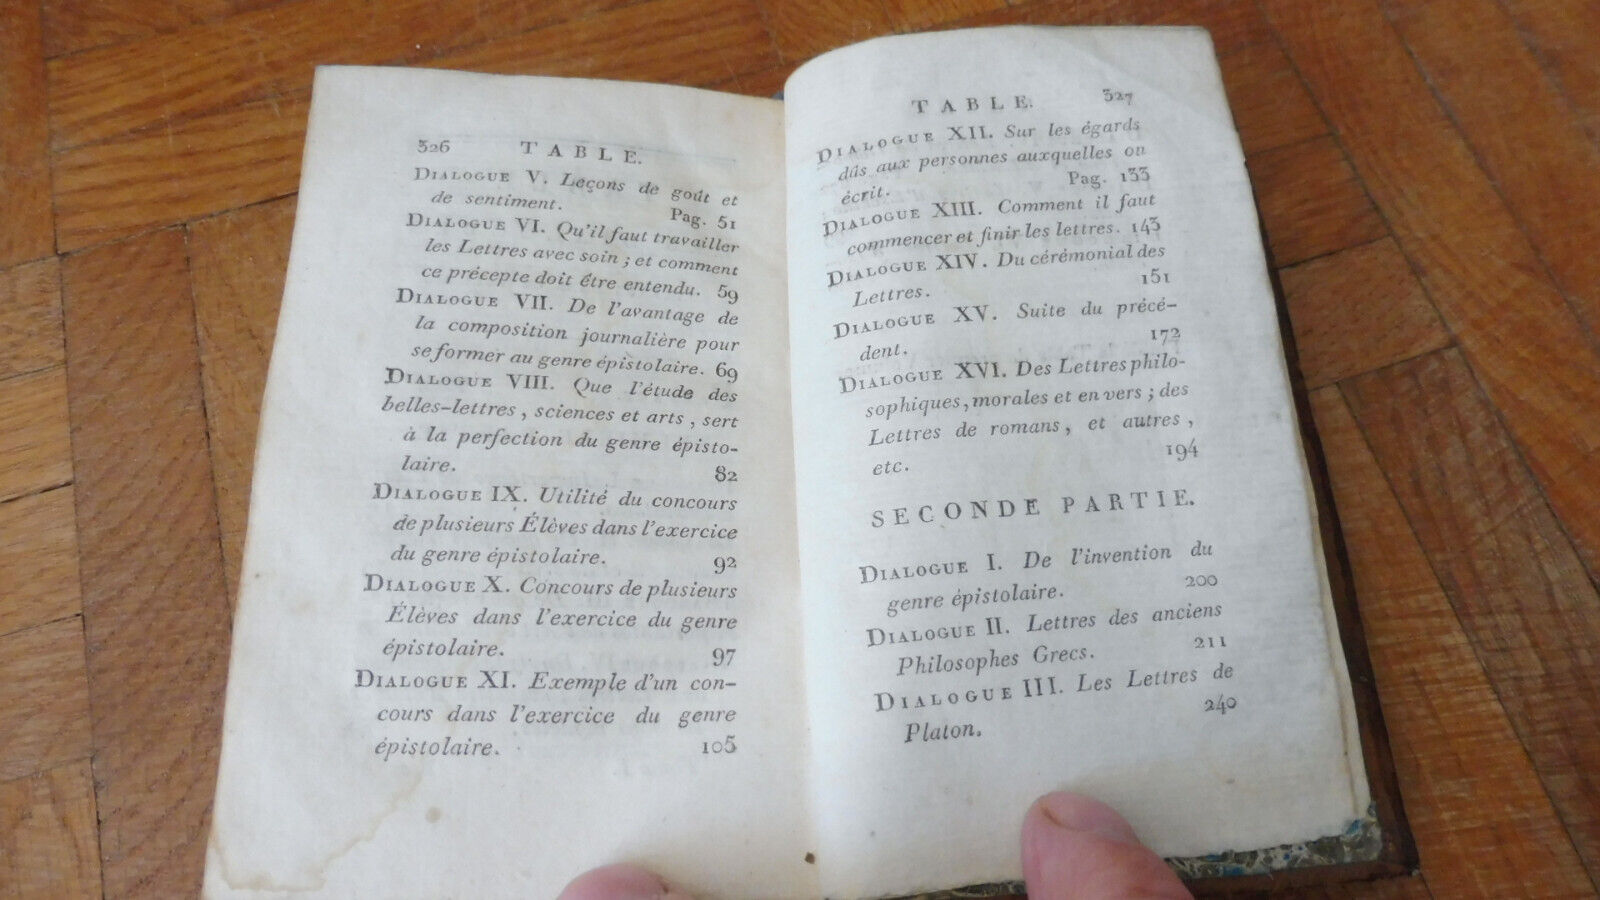 326 TABLE.
DIALOGUE V. Leçons de goût et
de sentiment. Pag. 51
DIALOGUE VI. Qu'il faut travailler
les Lettres avec soin ; et comment
ce précepte doit être entendu. 59
DIALOGUE VII. De l'avantage de
la composition journalière pour
se former au genre épistolaire. 69
DIALOGUE VIII. Que l'étude des
belles-lettres, sciences et arts, sert
à la perfection du genre épisto-
laire. 82
DIALOGUE IX. Utilité du concours
de plusieurs Élèves dans l'exercice
du genre épistolaire. 92
DIALOGUE X. Concours de plusieurs
Élèves dans l'exercice du genre
épistolaire. 97
DIALOGUE XI. Exemple d'un con-
cours dans l'exercice du genre
épistolaire. 105
TABLE. 327
DIALOGUE XII. Sur les égards
dûs aux personnes auxquelles on
écrit. Pag. 133
DIALOGUE XIII. Comment il faut
commencer et finir les lettres. 143
DIALOGUE XIV. Du cérémonial des
Lettres. 151
DIALOGUE XV. Suite du précé-
dent. 172
DIALOGUE XVI. Des Lettres philo-
sophiques, morales et en vers ; des
Lettres de romans, et autres,
etc. 194
SECONDE PARTIE.
DIALOGUE I. De l'invention du
genre épistolaire. 200
DIALOGUE II. Lettres des anciens
Philosophes Grecs. 211
DIALOGUE III. Les Lettres de
Platon. 240